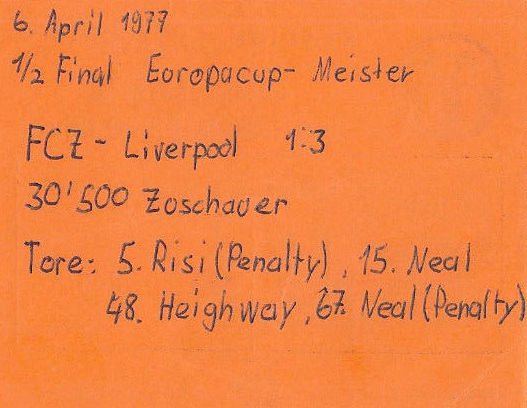 6. April 1977
1/2 Final Europacup- Meister
FCZ - Liverpool 1:3
30'500 Zuschauer
Tore: 5. Risi (Penalty), 15. Neal
48. Heighway, 67. Neal (Penalty)